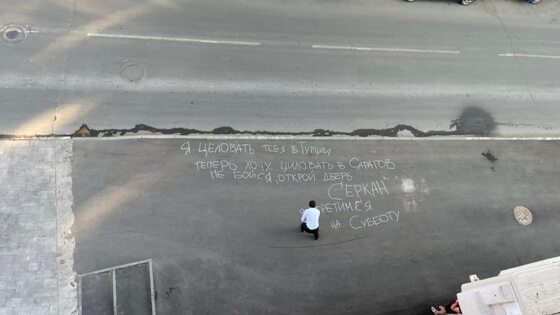 Я ЦЕЛОВАТЬ ТЕБЯ В ТУРЦИИ
ТЕПЕРЬ ХОЧУ ЦИЛОВАТЬ В САРАТОВ
НЕ БОЙСЯ, ОТКРОЙ ДВЕРЬ
СЕРКАН
НА СУББОТУ